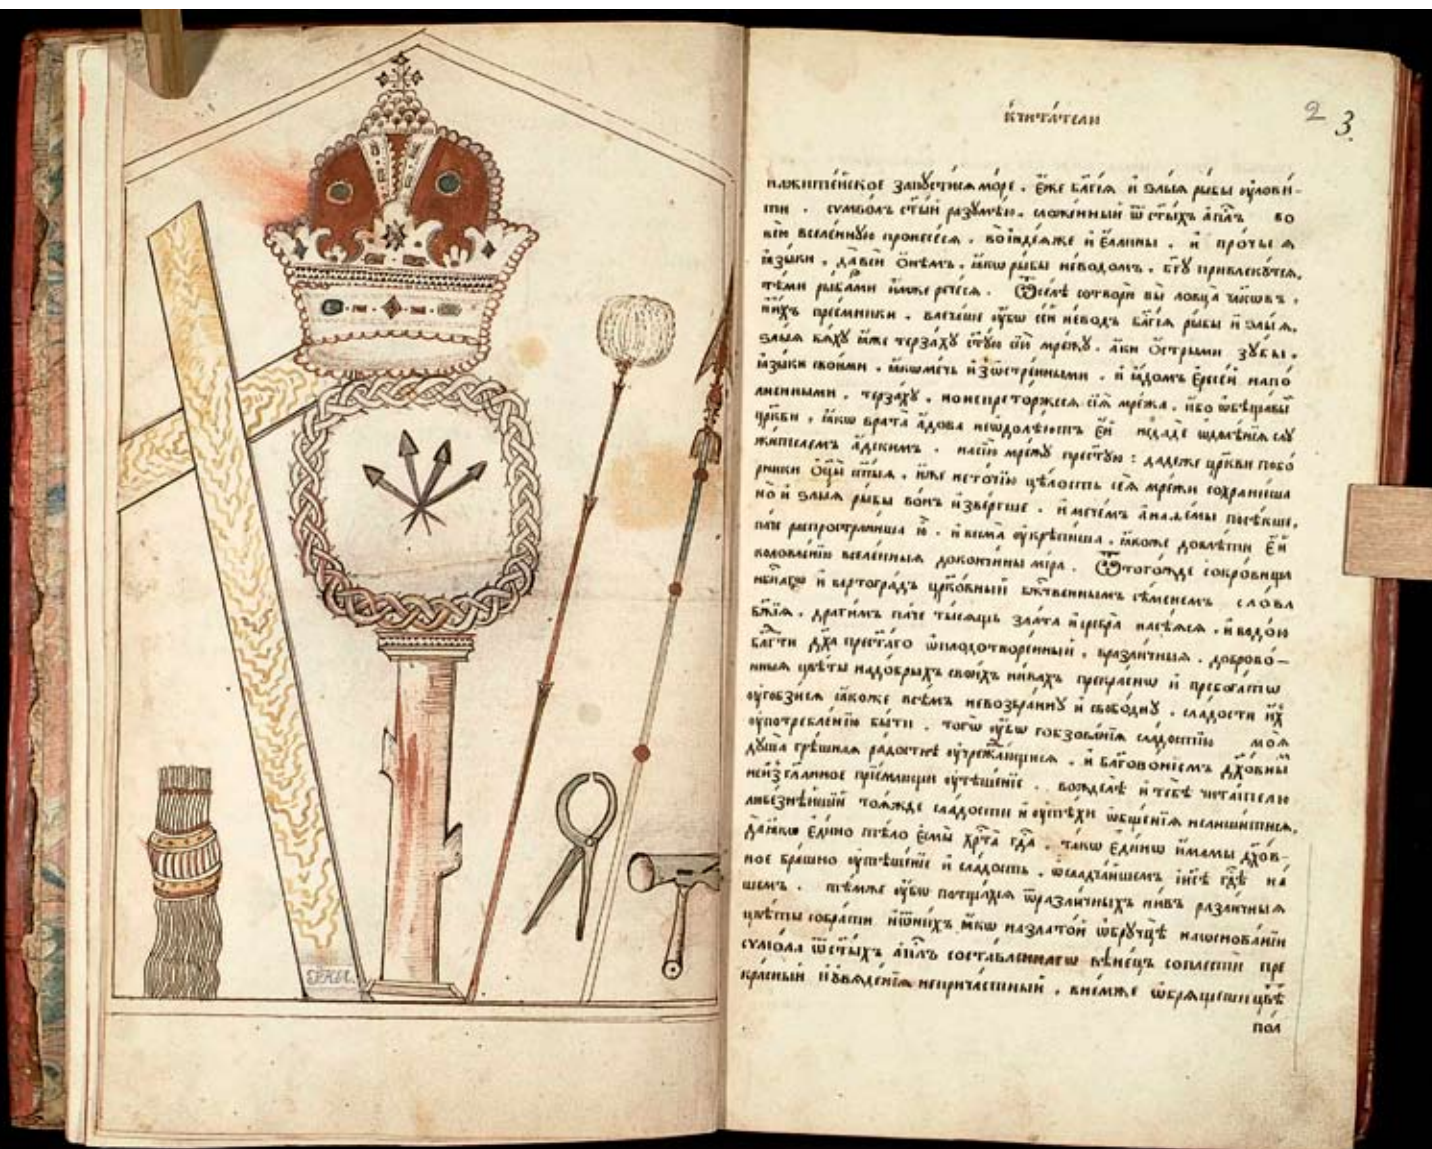 Къчита́телю
2 3
нажите́йское запꙋсти́ся мо́ре. е҆́же бл҃гі́ѧ и҆ ѕлы́ѧ ры́бы ᲂу҆лови́-
ти. сѵмво́лъ ст҃ы́й разꙋмѣ́ю. сложе́нный ѿ ст҃ы́хъ а҆пⷭ҇лъ во
всю̀ вселе́ннꙋю пронесе́сѧ. во і҆ꙋде́ѧ же и҆ є҆́ллины. и҆ про́чыѧ
ꙗ҆зы́ки. да въ не́мъ. ꙗ҆́кѡ ры́бы не́водомъ. бг҃ꙋ привлекꙋ́тсѧ,
тѣ́ми ры́бами и҆̀мже рече́сѧ. ѿселѣ̀ сотворю̀ вы̀ ловца̀ чл҃кѡвъ.
ни́хъ прее́мники. влеча́ше ᲂу҆́бѡ се́й не́водъ бл҃гі́ѧ ры́бы и҆ ѕлы́ѧ.
ѕлы́ѧ бѧ́хꙋ и҆̀же терза́хꙋ ст҃ꙋ́ю сїю̀ мре́жꙋ. а҆́ки о҆́стрыми зꙋбы̀.
ꙗ҆зы́ки свои́ми. ꙗ҆́кѡ ме́чь и҆зѡстре́нными. и҆ ꙗ҆́домъ є҆ресе́й напо́
лненными. терза́хꙋ. но не преторже́сѧ сїѧ̀ мре́жа. и҆́бо ѡ҆бѣща́вый
цр҃кви. ꙗ҆́кѡ врата̀ а҆́дова не ѡ҆долѣ́ютъ є҆́й не дадѐ ѡ҆долѣ́тисѧ слꙋ
жи́телемъ а҆́дскимъ. на сїю̀ мре́жꙋ прест҃ꙋ́ю: даде́ же цр҃кви побо́
рники ѻ҆ц҃ы̀ ст҃ы́ѧ. и҆̀же не то́чїю цѣ́лость сеѧ̀ мре́жи сохрани́ша
но и҆ ѕлы́ѧ ры́бы во́нъ и҆зверго́ше. и҆ мече́мъ а҆на́ѳемы посѣ́кше,
па́че распространи́ша ю҆̀. и҆ весьма̀ ᲂу҆крѣпи́ша. ꙗ҆́коже довлѣ́ти є҆́й
ко ловле́нїю вселе́нныѧ до кончи́ны мі́ра. ѿтого́жде сокро́вища
и҆ вертогра́дъ цр҃ко́вный бж҃твеннымъ сѣ́менемъ сло́ва
бж҃їѧ. драги́мъ па́че ты́сѧщь зла́та и҆ сребра̀ насѣ́ѧсѧ. и҆ водо́ю
бл҃гти дх҃а прест҃а́гѡ ѡ҆плодотворе́нный. в разли́чныѧ. доброво́-
нныѧ цвѣ́ты на до́брыхъ свои́хъ ни́вахъ прекра́снѡ и҆ пребога́тѡ
ᲂу҆гобзи́сѧ ꙗ҆́коже всѣ́мъ невозбра́ннꙋ и҆ свобо́днꙋ. сла́дости и҆́хъ
ᲂу҆потребле́нїю бы́ти. тогѡ̀ ᲂу҆́бѡ гобзова́нїѧ сла́достїю моѧ̀
дꙋша̀ грѣ́шнаѧ ра́достнѣ ᲂу҆чрежда́ющисѧ. и҆ бл҃гово́нїемъ дꙋхо́внымъ
неизгла́нное прїе́млющи ᲂу҆тѣше́нїе. вожделѣ̀ и҆ тебѣ̀ чита́телю
любе́знѣйшїй тоѧ́жде сла́дости и҆ ᲂу҆тѣ́хи ѡ҆бще́нїѧ не лиши́тисѧ.
да ꙗ҆́кѡ є҆ди́но тѣ́ло є҆смы̀ хр҃та̀ гд҃а. та́кѡ є҆ди́нѡ и҆́мамы дх҃о́в-
ное бра́шно ᲂу҆тѣше́нїе и҆ сла́дость. ѡ҆ сладча́йшемъ і҆и҃сѣ гд҃ѣ на́
шемъ. тѣ́мже ᲂу҆́бѡ потща́хсѧ ѿ разли́чныхъ ни́въ разли́чныѧ
цвѣ́ты собра́ти и҆ ѿ ни́хъ ꙗ҆́кѡ на златѡ́й ѡ҆брꙋ́чцѣ на ѡ҆снова́нїи
сѵмво́ла ѿ ст҃ы́хъ а҆пⷭ҇лъ соста́вленнагѡ вѣне́цъ соплестѝ пре
кра́сный и҆ ᲂу҆вѧде́нїѧ неприча́стный. в не́мже ѡ҆брѧ́щеши цвѣ́
пол